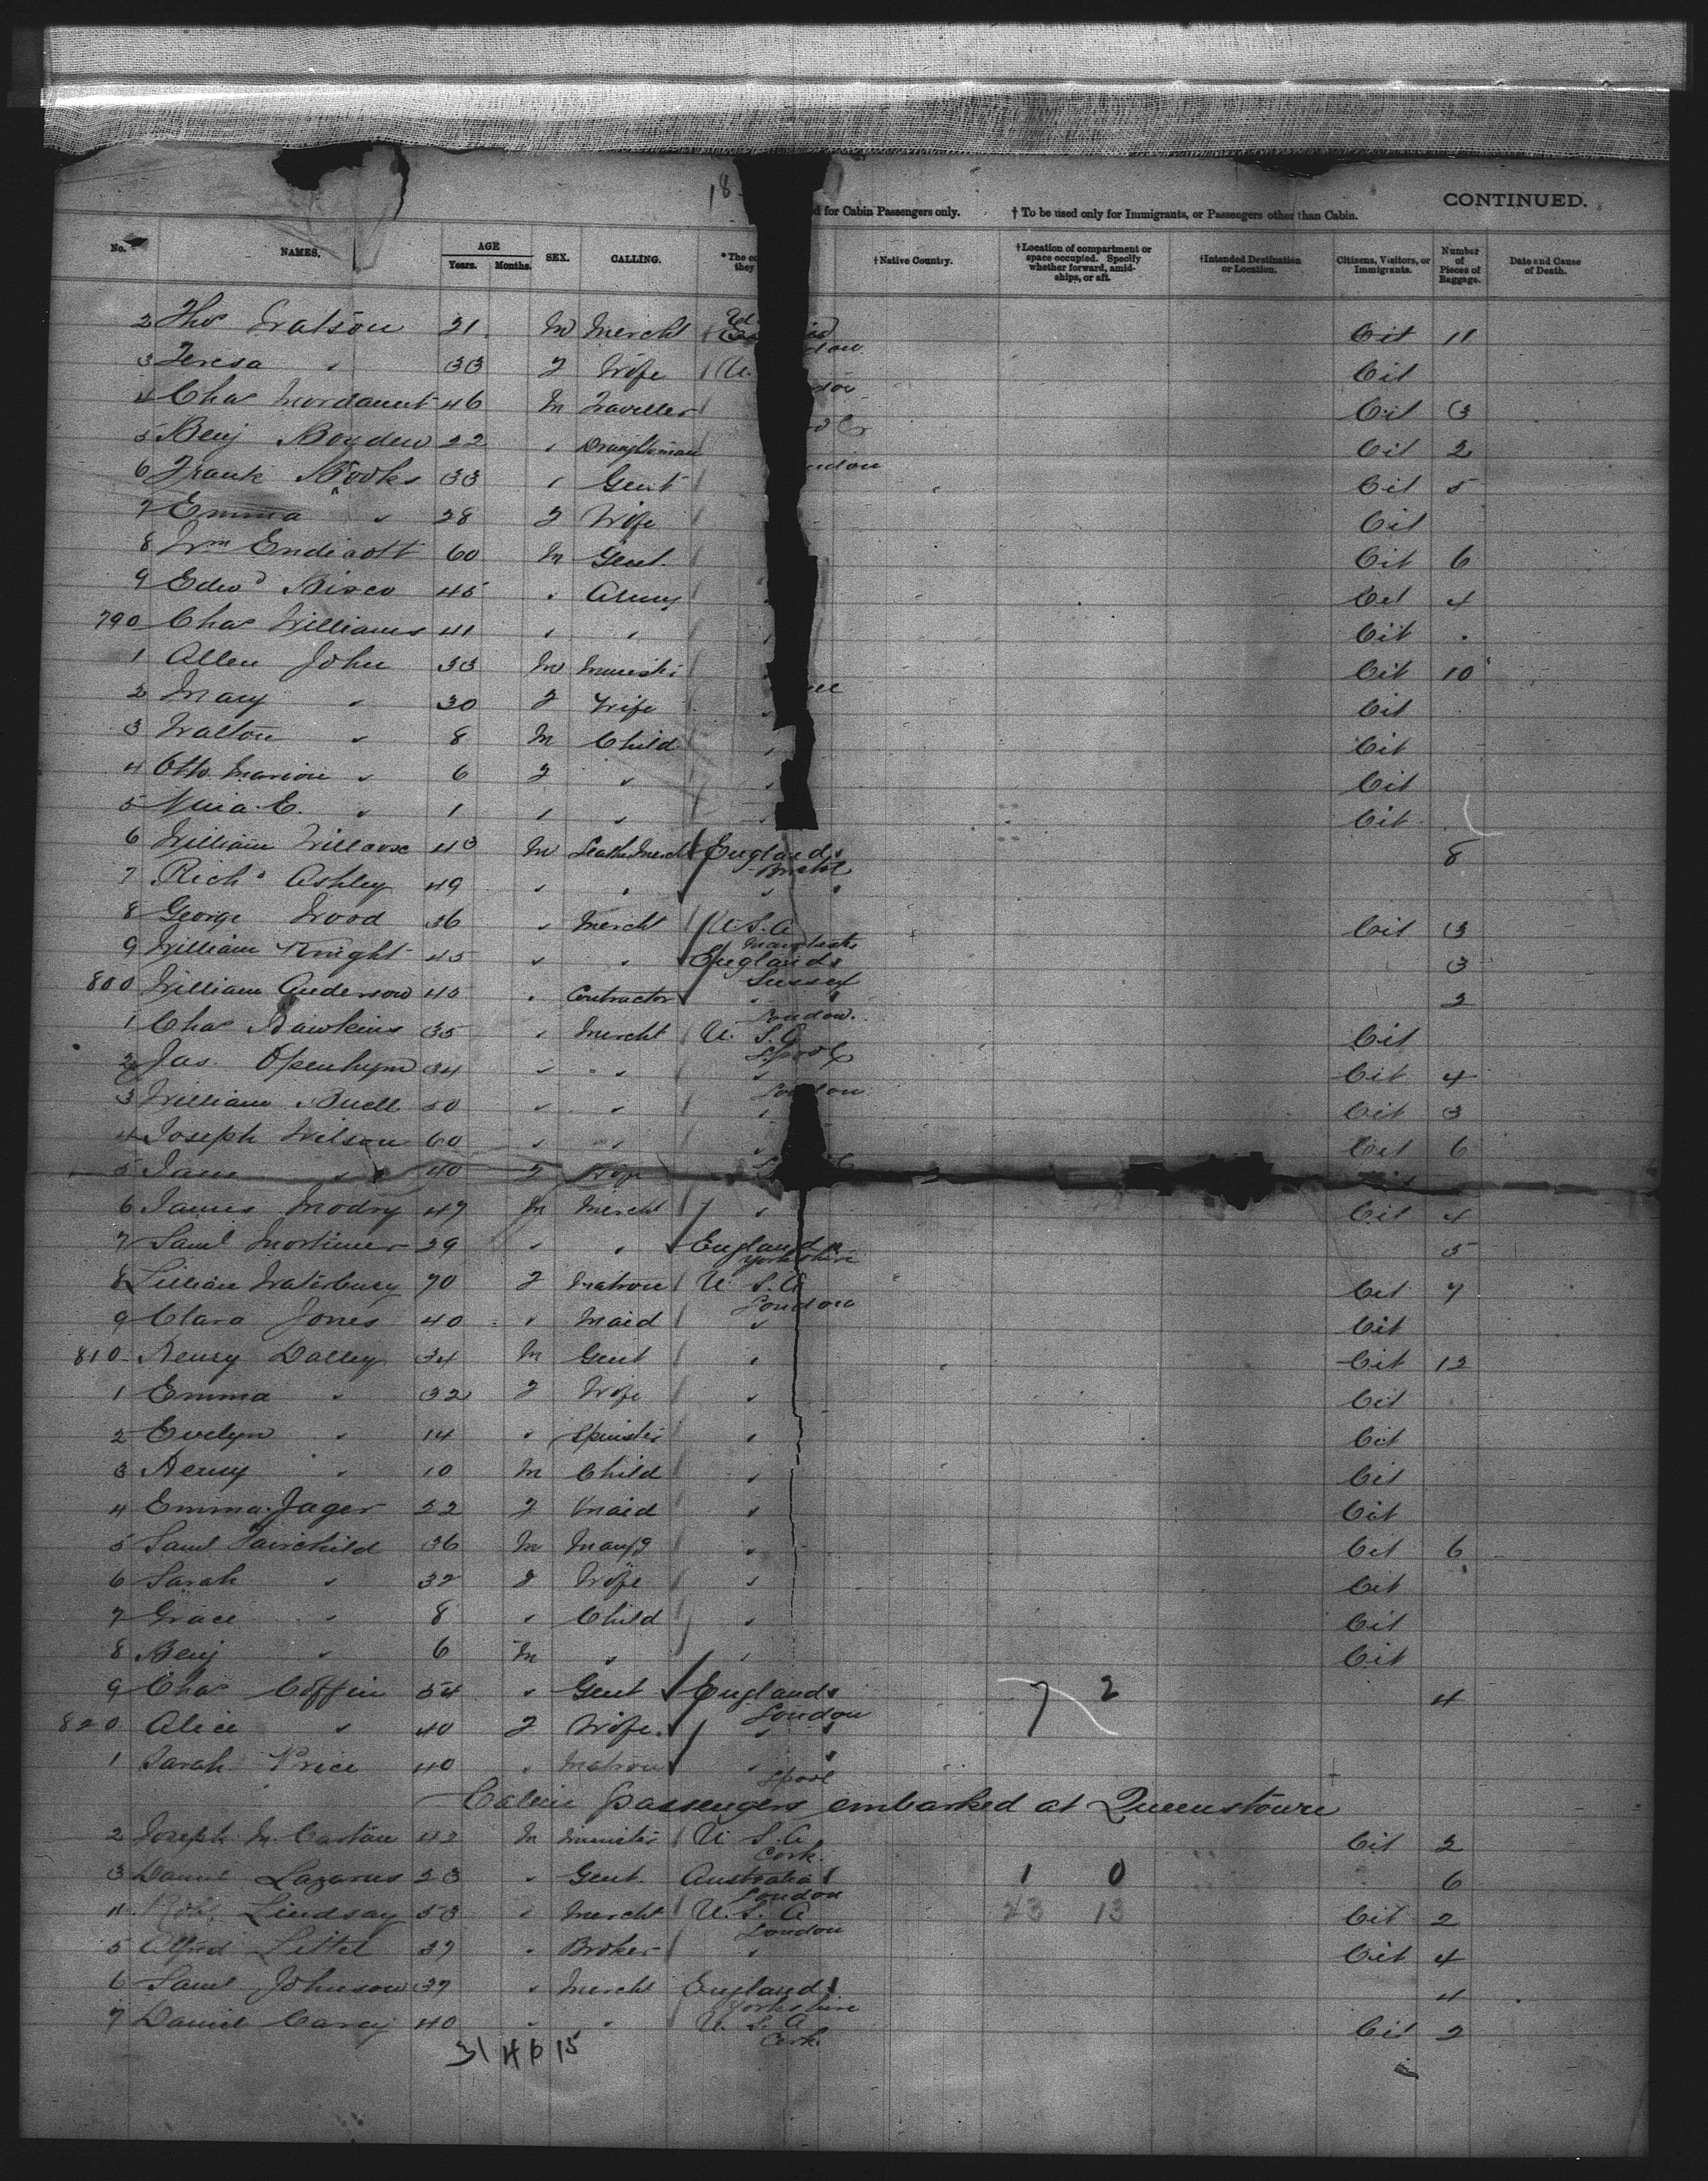 18
d for Cabin Passengers only. † To be used only for Immigrants, or Passengers other than Cabin. CONTINUED.
No. NAMES. AGE Years. Months. SEX. CALLING. *The co they †Native Country. †Location of compartment or space occupied. Specify whether forward, amidships, or aft. †Intended Destination or Location. Citizens, Visitors, or Immigrants. Number of Pieces of Baggage. Date and Cause of Death.
2 Thos Watson 21 M Mercht Cit 11
3 Teresa " 33 F Wife U. Cit
4 Chas Mordaunt 46 M Traveller Cit 3
5 Benj Boyden 22 " Draughtsman Cit 2
6 Frank Rooks 33 " Gent ondon Cit 5
7 Emma " 28 F Wife Cit
8 Wm Endicott 60 M Gent. Cit 6
9 Edwd Bisco 45 " Army Cit 4
790 Chas Williams 41 " " Cit "
1 Allen John 33 M Minister Cit 10
2 Mary " 30 F Wife " Cit
3 Walton " 8 M Child " Cit
4 Otto Marion " 6 F " " Cit
5 Nina E. " 1 " " " Cit
6 William 43 M Leather Mercht England Bristol 8
7 Richd Ashley 49 " " " "
8 George Wood 36 " Mercht U.S.A Cit 3
9 William Knight 45 " " England Sussex 3
800 William Anderson 45 " Contractor " London. 2
1 Chas Hawkins 35 " Mercht U. S. A Lpool Cit
2 Jas. Openhym 34 " " " London Cit 4
3 William Buell 50 " " " Cit 3
4 Joseph Wilson 60 " " " Cit 6
5 Jane " 40 F Wife
6 James Modry 47 M Mercht " Cit 4
7 Saml Mortimer 29 " " England Yorkshire 5
8 Lillian Waterbury 70 F Matron U. S. A London Cit 7
9 Clara Jones 40 " Maid " Cit
810 Henry Dalley 34 M Gent " Cit 12
1 Emma " 32 F Wife " Cit
2 Evelyn " 14 " Spinster " Cit
3 Henry " 10 M Child " Cit
4 Emma Jager 22 F Maid " Cit
5 Saml Fairchild 36 M Manfg " Cit 6
6 Sarah " 32 F Wife " Cit
7 Grace " 8 " Child " Cit
8 Benj " 6 M " " Cit
9 Chas Coffin 54 " Gent England London 7 2 4
820 Alice " 40 F Wife " "
1 Sarah Price 40 " Matron " Lpool
Cabin passengers embarked at Queenstown
2 Joseph Mc Cartan 42 M Minister U S. A Cork. Cit 2
3 Daniel Lazarus 23 " Gent. Australia London 1 0 6
4 Robt Lindsay 53 " Mercht U. S. A London 23 13 Cit 2
5 Alfred Littel 37 " Broker " Cit 4
6 Saml Johnson 37 " Mercht England Yorkshire 4
7 Daniel Carey 40 " " U. S. A Cork. Cit 2
31 4 6 15